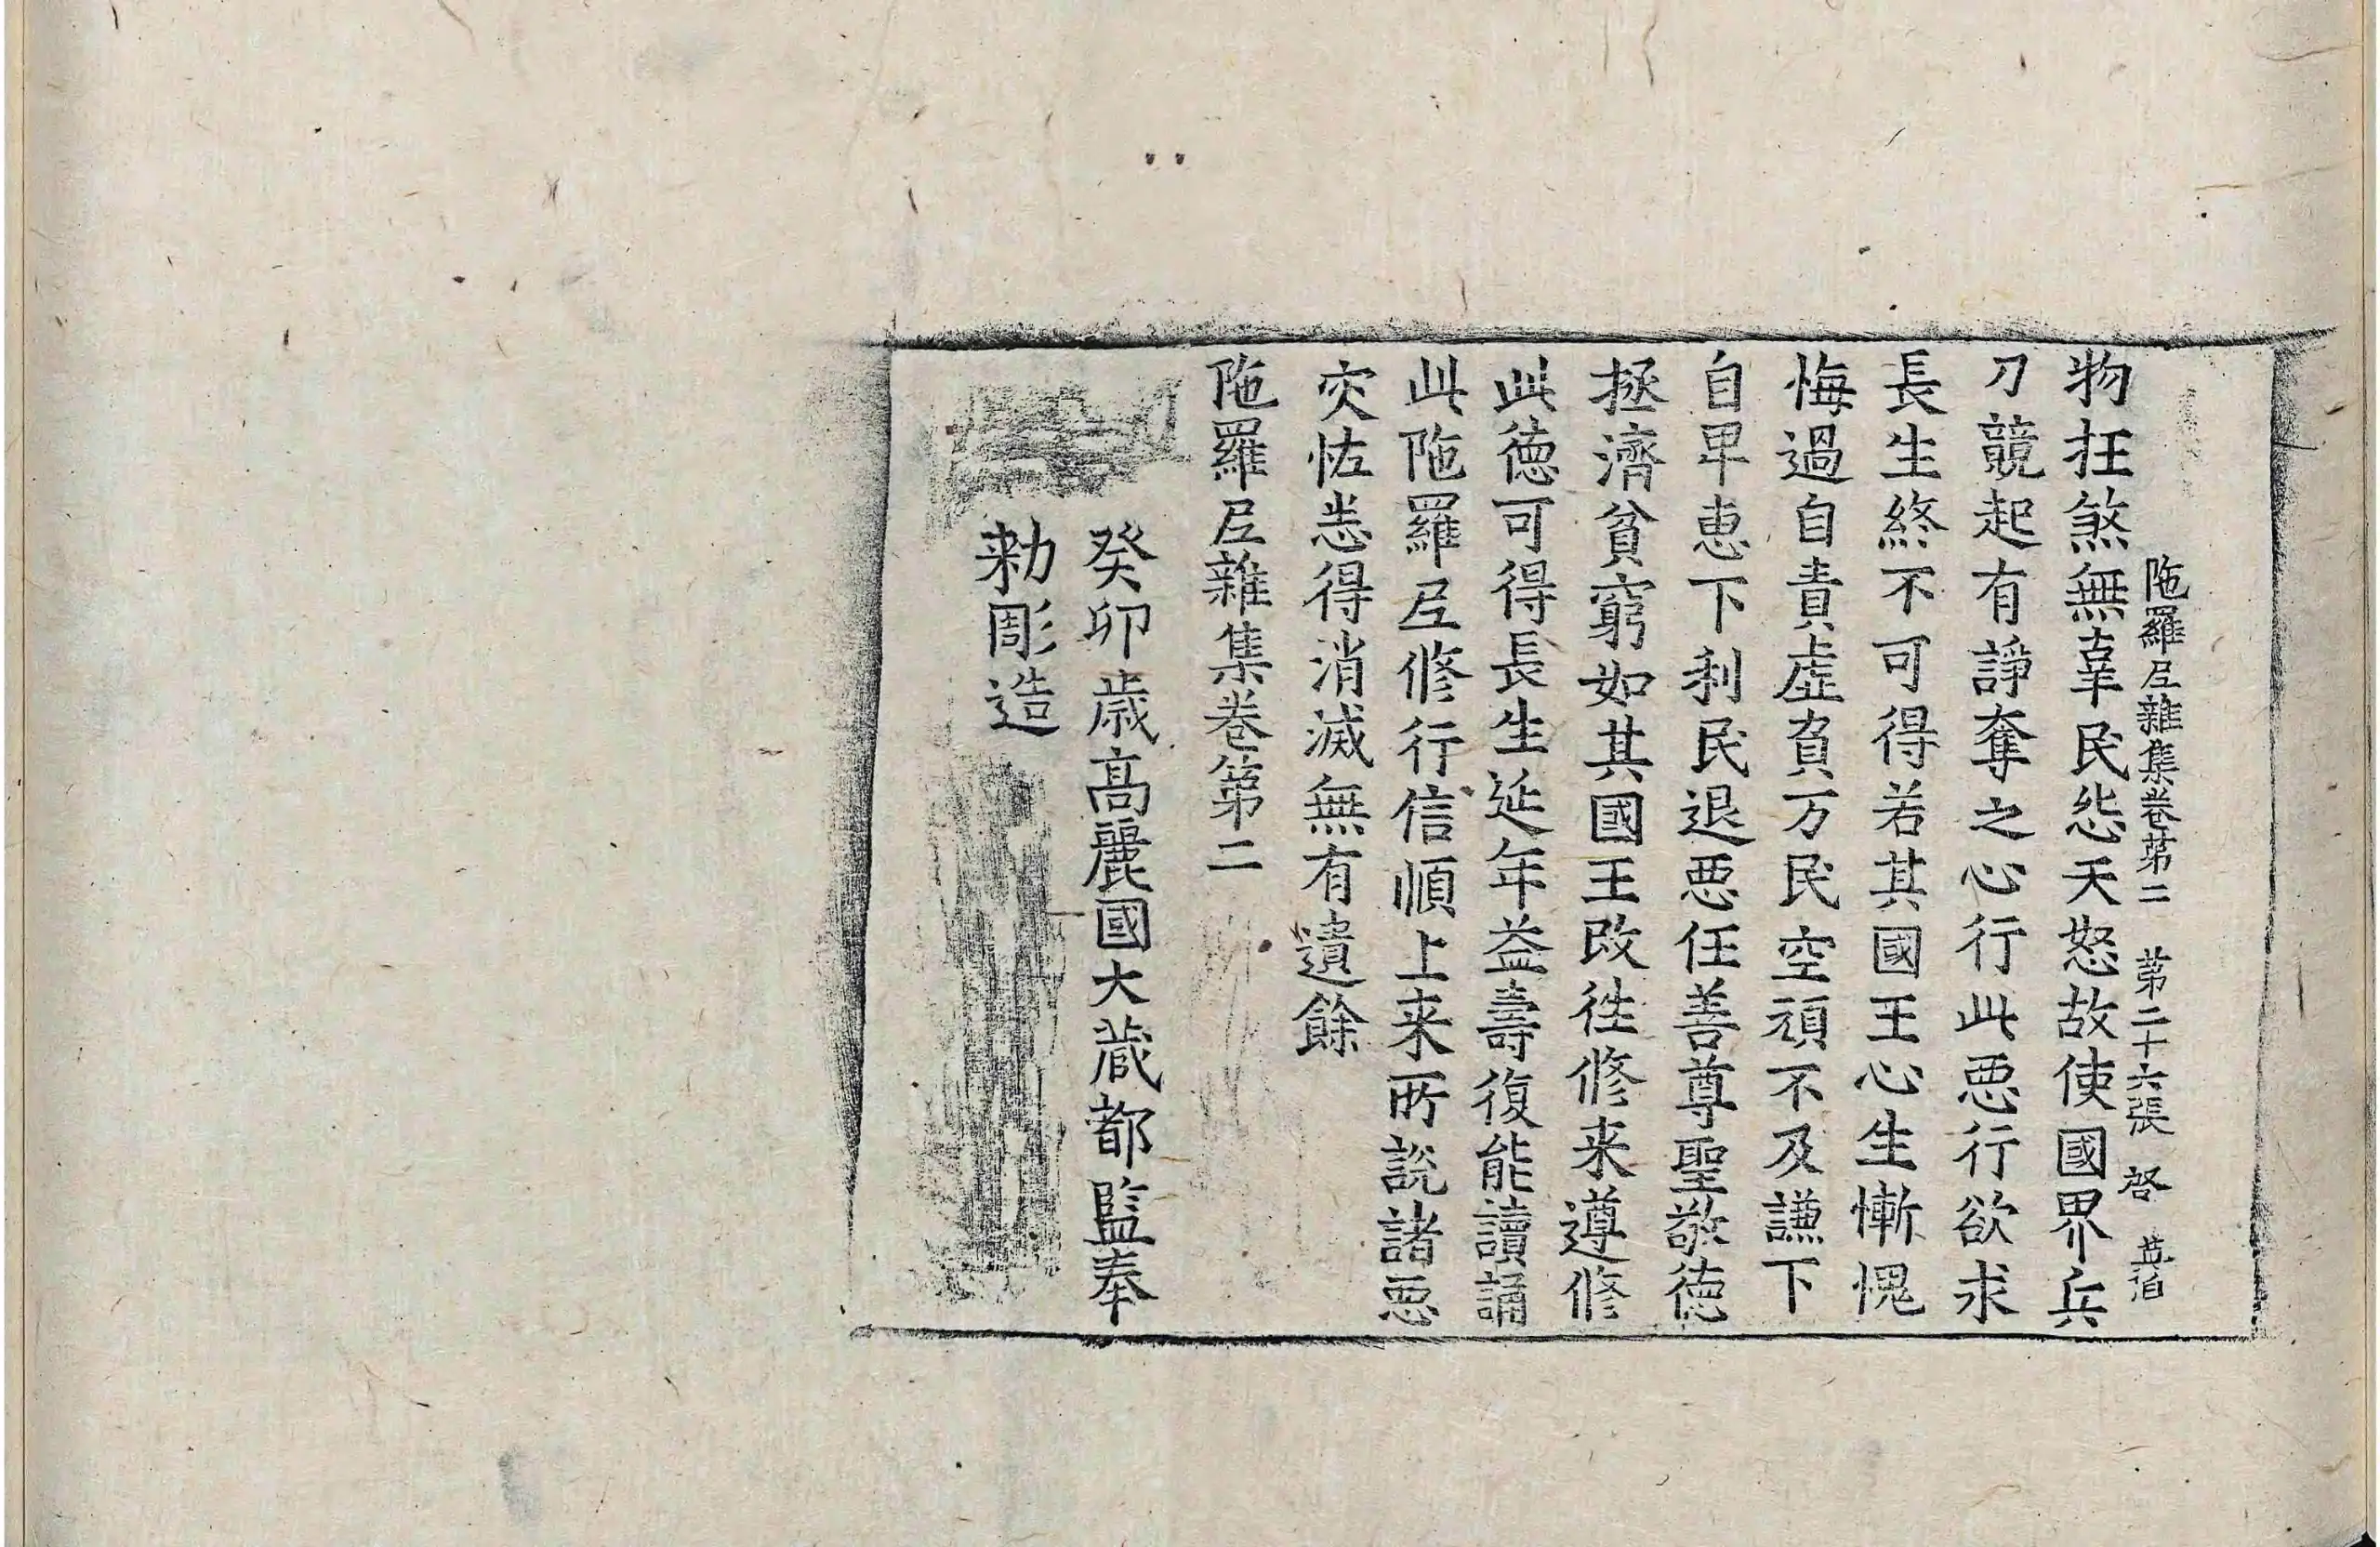 陁羅尼雜集卷苐二 苐二十六張 啓
物抂煞無辜民怨天怒故使國界兵
刀競起有諍奪之心行此惡行欲求
長生終不可得若其國王心生慚愧
悔過自責虛負万民空頑不及謙下
自卑惠下利民退惡任善尊聖敬德
拯濟貧窮如其國王改往修来遵修
此德可得長生延年益壽復能讀誦
此陁羅尼修行信順上来所說諸惡
灾怪悉得消滅無有遺餘
陁羅尼雜集卷第二
癸卯歲高麗國大藏都監奉
勅彫造